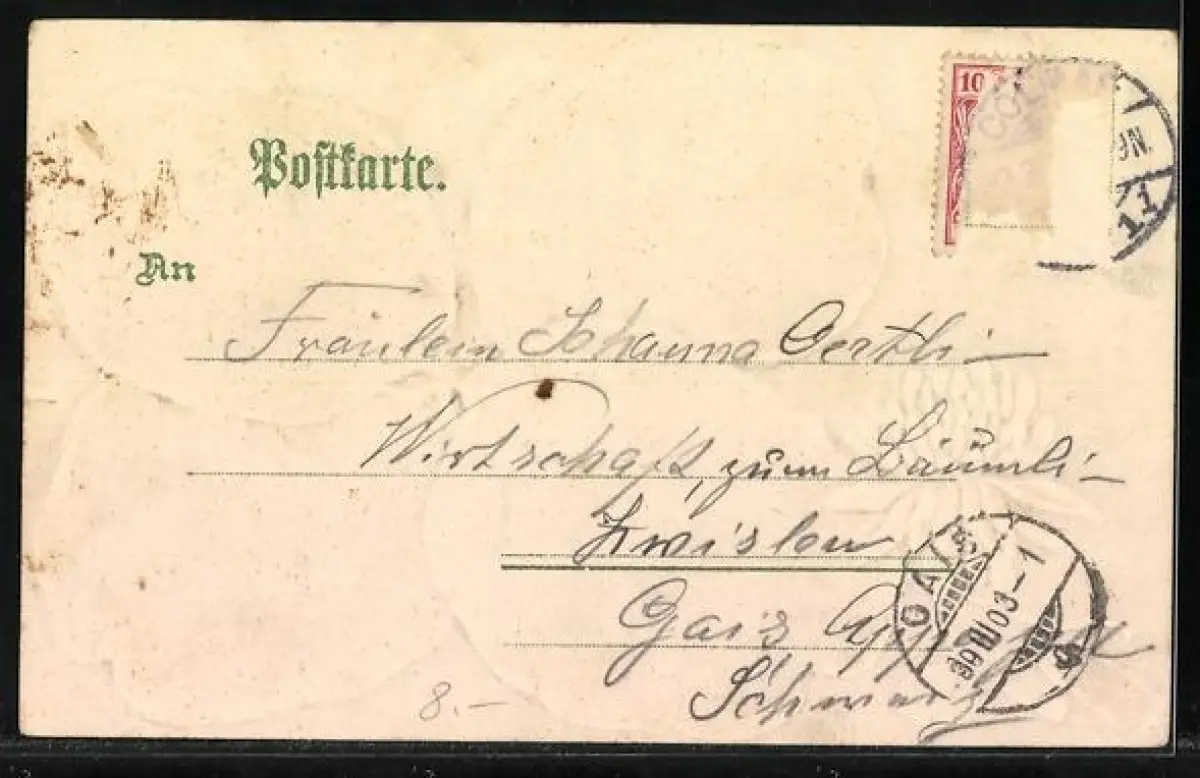 10
COLMAR
9N.
11
Postkarte.
An
Fräulein Johanna Oertli
Wirtschaft, zum Bäumli
Zwislen
Gais Appenzell
Schweiz
GAIS
III 03 – 1
8.–